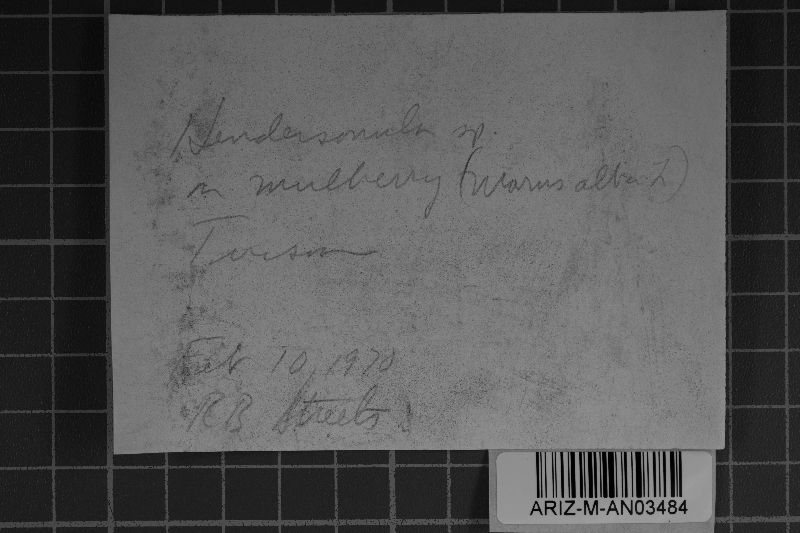 Hendersonula sp.
on mulberry (Morus alba L)
Tucson
Feb 10, 1970
RB Streets
ARIZ-M-AN03484